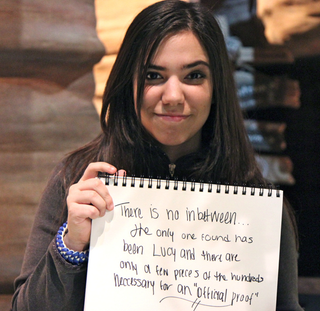 There is no inbetween...
the only one found has
been Lucy and there are
only a few pieces of the hundreds
necessary for an "official proof"